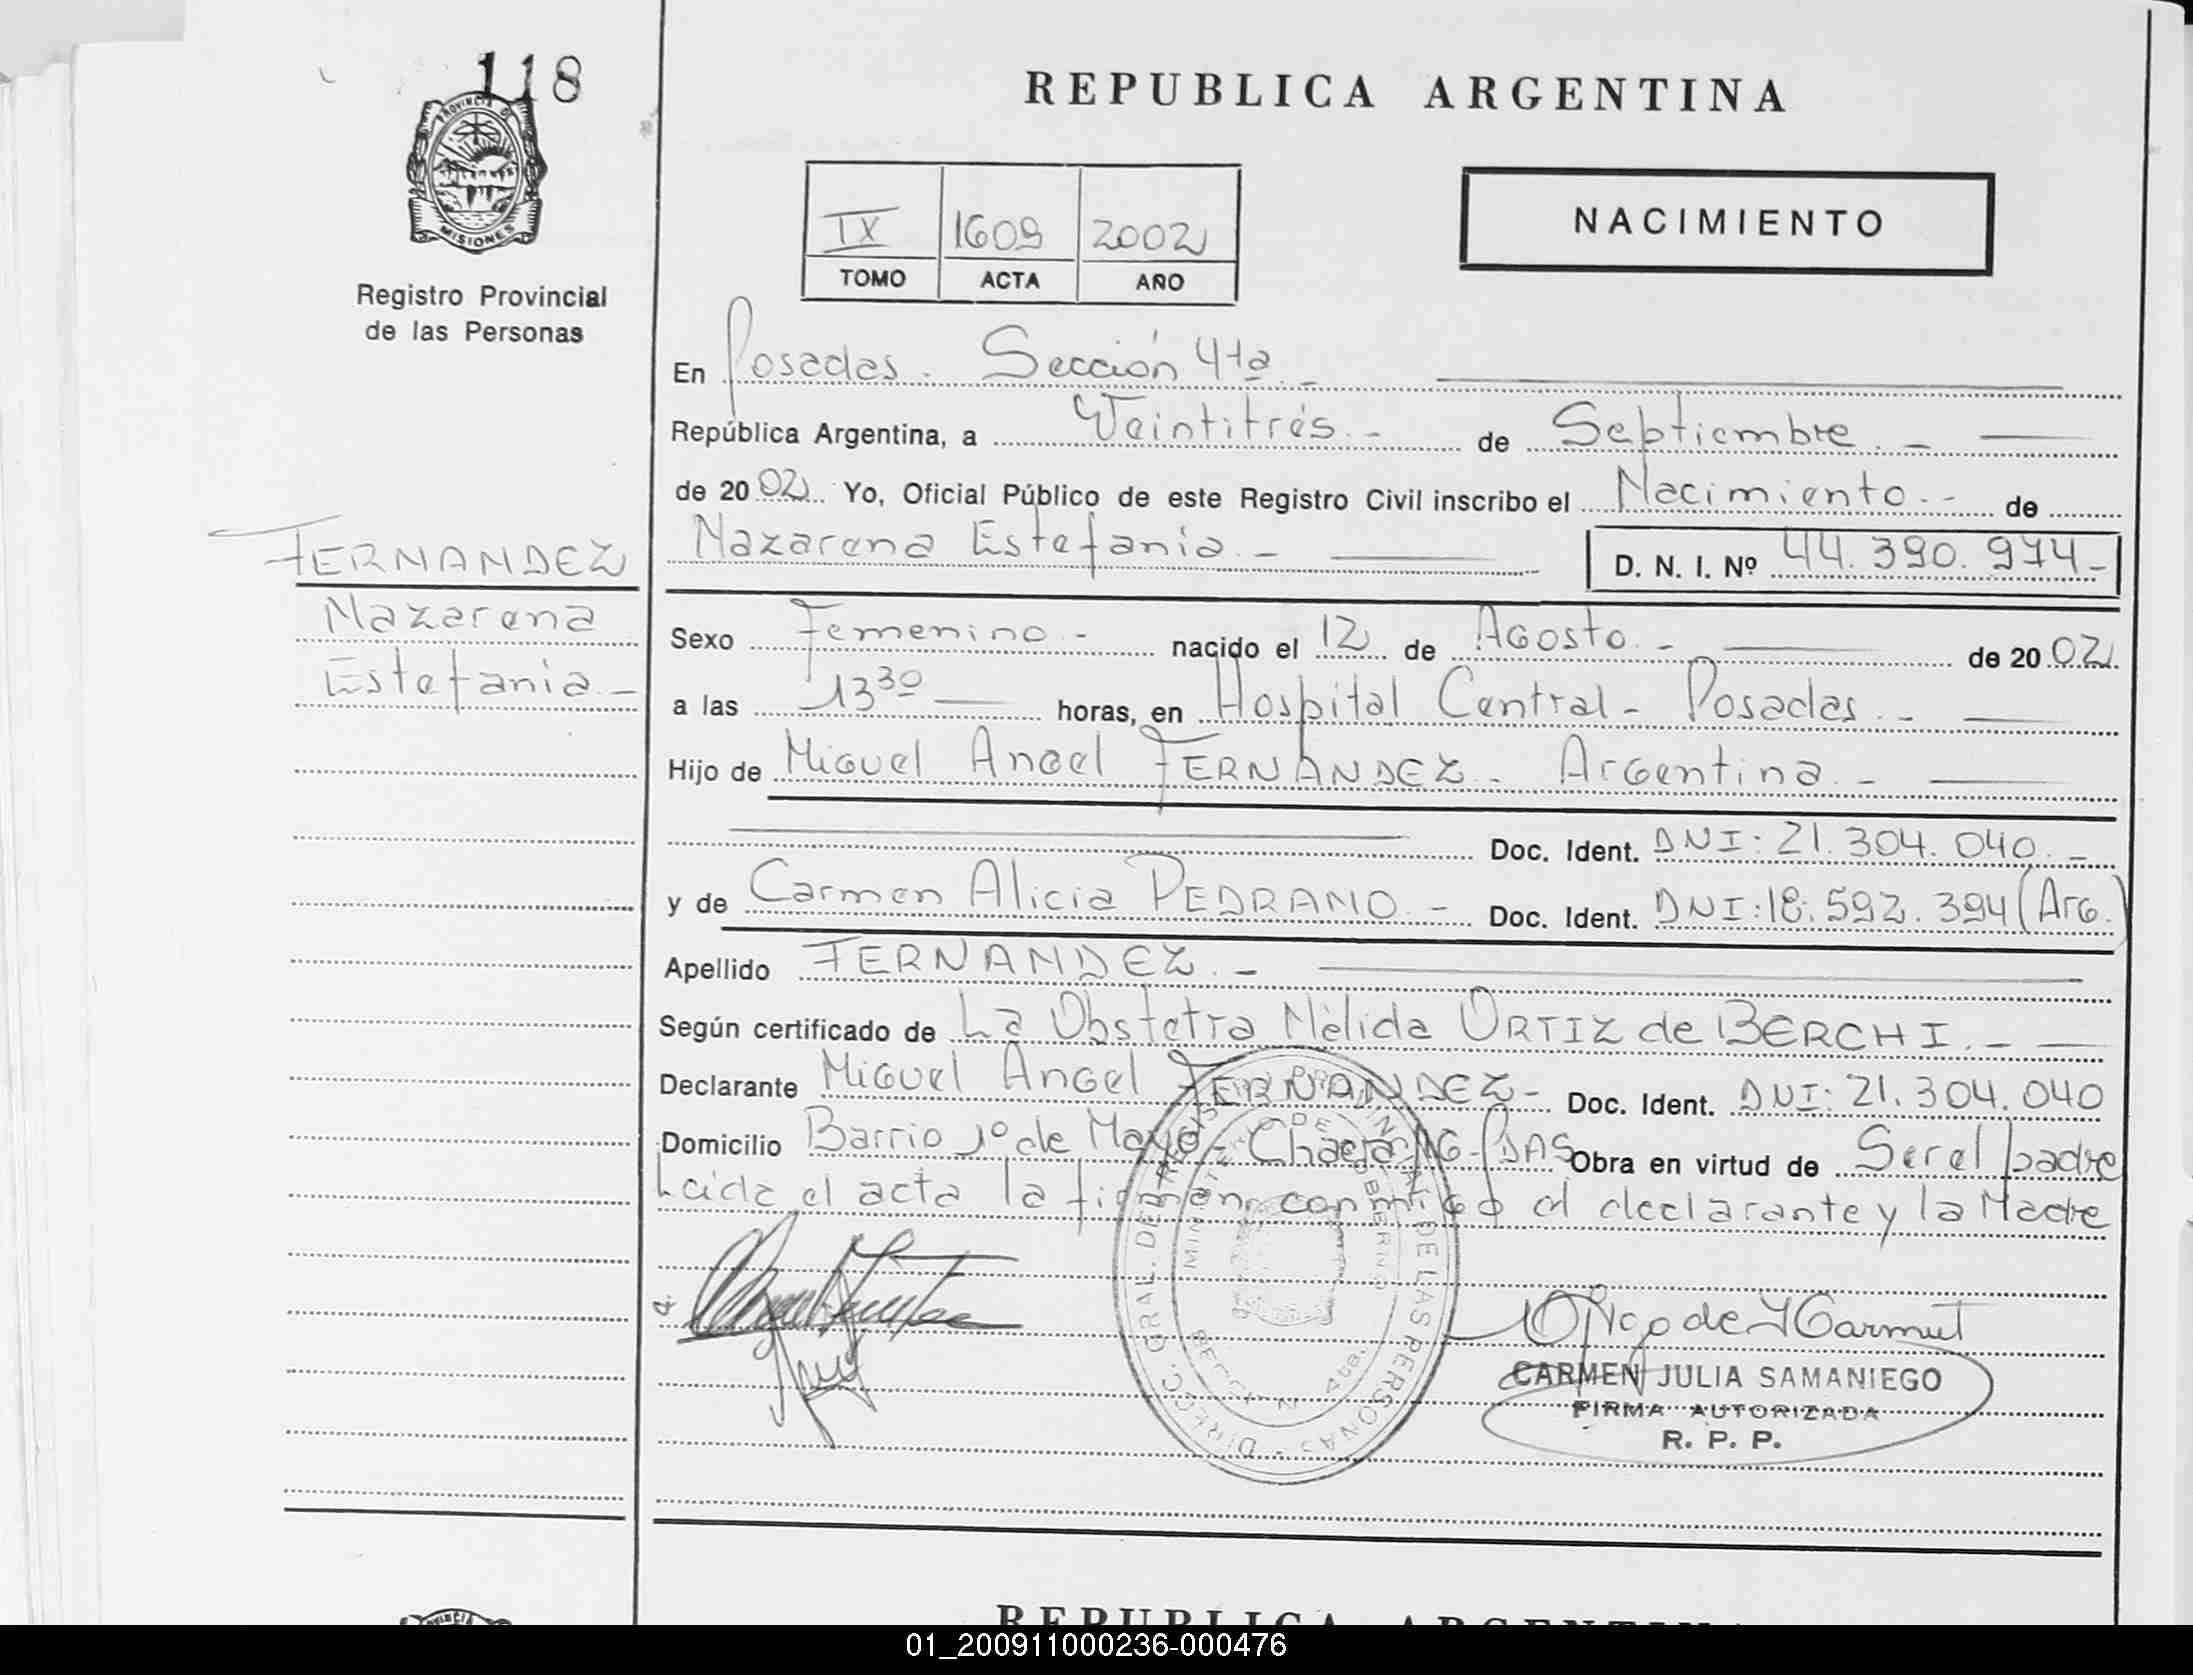 118
PROVINCIA DE
MISIONES
Registro Provincial
de las Personas
FERNANDEZ
Nazarena
Estefania.-
REPUBLICA ARGENTINA
IX 1609 2002
TOMO ACTA AÑO
NACIMIENTO
En Posadas. Sección 4ta.-
República Argentina, a Veintitrés.- de Septiembre.-
de 2002. Yo, Oficial Público de este Registro Civil inscribo el Nacimiento.- de
Nazarena Estefanía.- D. N. I. Nº 44.390.974-
Sexo Femenino.- nacido el 12 de Agosto.- de 2002.
a las 13 30 horas, en Hospital Central- Posadas.-
Hijo de Miguel Angel FERNANDEZ. Argentina.-
Doc. Ident. DNI: 21.304.040.-
y de Carmen Alicia PEDRAMO.- Doc. Ident. DNI: 18.592.394 (Arg.)
Apellido FERNANDEZ.-
Según certificado de La Obstetra Nélida ORTIZ de BERCHI.-
Declarante Miguel Angel FERNANDEZ- Doc. Ident. DNI: 21.304.040
Domicilio Barrio 1º de Mayo- Chacra - PDAS Obra en virtud de Ser el padre
Leída el acta la firman conmigo el declarante y la Madre
DIRECC. GRAL. DEL REGISTRO PROVINCIAL DE LAS PERSONAS
MINISTERIO DE GOBIERNO
SECCION 4ta.
CARMEN JULIA SAMANIEGO
FIRMA AUTORIZADA
R. P. P.
PROVINCIA
REPUBLICA ARGENTINA
01_200911000236-000476